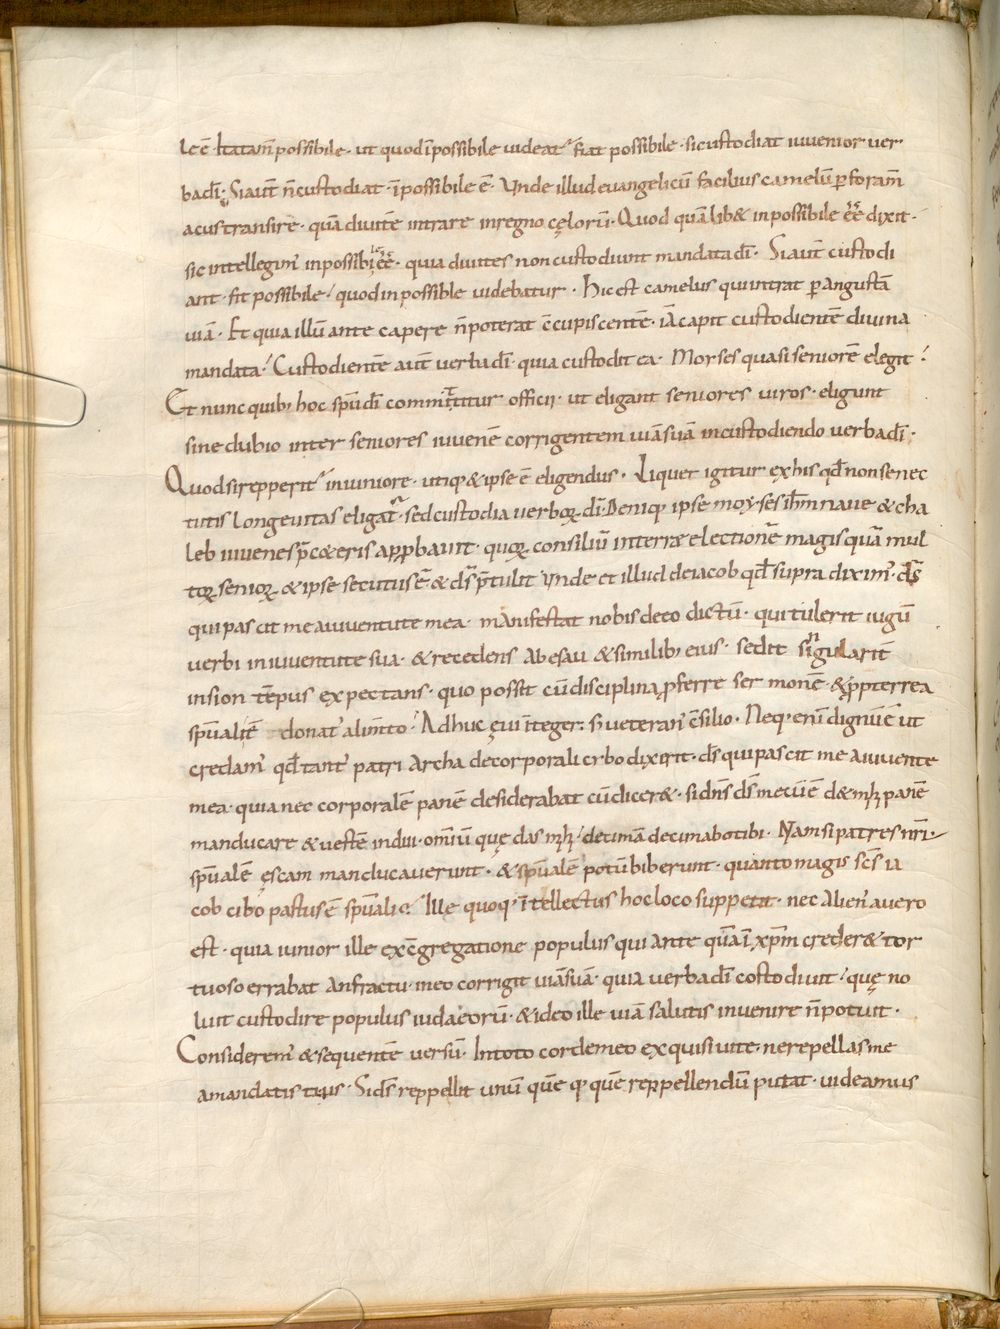 le ē· Ita tam̄ possibile· ut quod īpossibile videat᷑ fiat possibile· si custodiat iuvenior ver
ba dī· Si aut̄ n̄ custodiat· īpossibile ē· Unde illud evangelicū facilius camelū p foram̄
acus transire· quā divitē intrare in regno cęlorū· Quod quālib& inpossibile ēē dixit·
sic intellegim᷑ inpossibile ēē· quia divites non custodiunt mandata dī· Si aut̄ custodi
ant· fit possibile· quod inpossible videbatur· Hic est camelus qui intrat p angustā
viā· Et quia illū ante capere n̄ poterat c̄cupiscentē· iā capit custodientē divina
mandata· Custodientē aut̄ verba dī· quia custodit ea· Moyses quasi seniorē elegit·
Et nunc quib; hoc spū dī committitur officii· ut eligant seniores viros· eligunt
sine dubio inter seniores iuvenē corrigentem viā suā in custodiendo verba dī·
Quod si reppererit᷑ in iuniore· utiq; & ipse ē eligendus· Liquet igitur ex his qđ non senec
tutis longevitas eligat᷑· sed custodia verboꝝ dī· Deniq; ipse moyses ih̄m nave & cha
leb iuvenes p̄ c&eris apꝓbavit· quoꝝ consiliū in terrae electionē magis quā mul
toꝝ senioꝝ & ipse secutus ē & ds̄ p̄tulit Unde et illud de iacob qđ supra dixim᷑· ds̄
qui pascit me a iuventute mea· manifestat nobis de eo dictū· qui tulerit iugū
verbi in iuventute sua· & recedens ab esau & similib; eius· sedit singularit̄
in sion tēpus expectans· quo possit cū disciplina ꝓferre sermonē· & ꝓpterrea
spūalitē donat᷑ alim̄to· Adhuc ęvi integer· s; veteran᷑ c̄silio· Neq; enī dignū ē ut
credam᷑ qđ tant᷑ patriarcha de corporali cibo dixerit· ds̄ qui pascit me a iuvente
mea· quia nec corporalē panē desiderabat cū dicer&· si dn̄s ds̄ mecū ē d& mihi panē
manducare & vestē indui· omīū quę das mihi· decimā decimabo tibi· Nam si patres nr̄i
spūalē ęscam manducaverunt· & spūalē potū biberunt· quanto magis scs̄ ia
cob cibo pastus ē spūali? Ille quoq; ītellectus hoc loco suppetit· nec alien᷑ a vero
est· quia iunior ille ex c̄gregatione populus qui ante quā ī xp̄m creder& tor
tuoso errabat anfractu· meo corrigit viā suā· quia verba dī costodivit· quę no
luit custodire populus iudaeorū· & ideo ille viā salutis invenire n̄ potuit·
Considerem᷑ & sequentē versū· In toto corde meo exquisivi te· ne repellas me
a mandatis tuis· Si ds̄ reppellit unū quē q; quē reppellendū putat· videamus